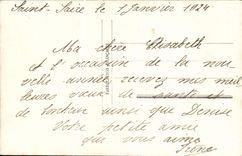 Saint-Saire le 1 Janvier 1924
Ma chère Elisabeth
à l'occasion de la nou
velle année recevez mes meil
leures vœux de santé et
de bonheur ainsi que Denise
Votre petite amie
qui vous aime
Irène